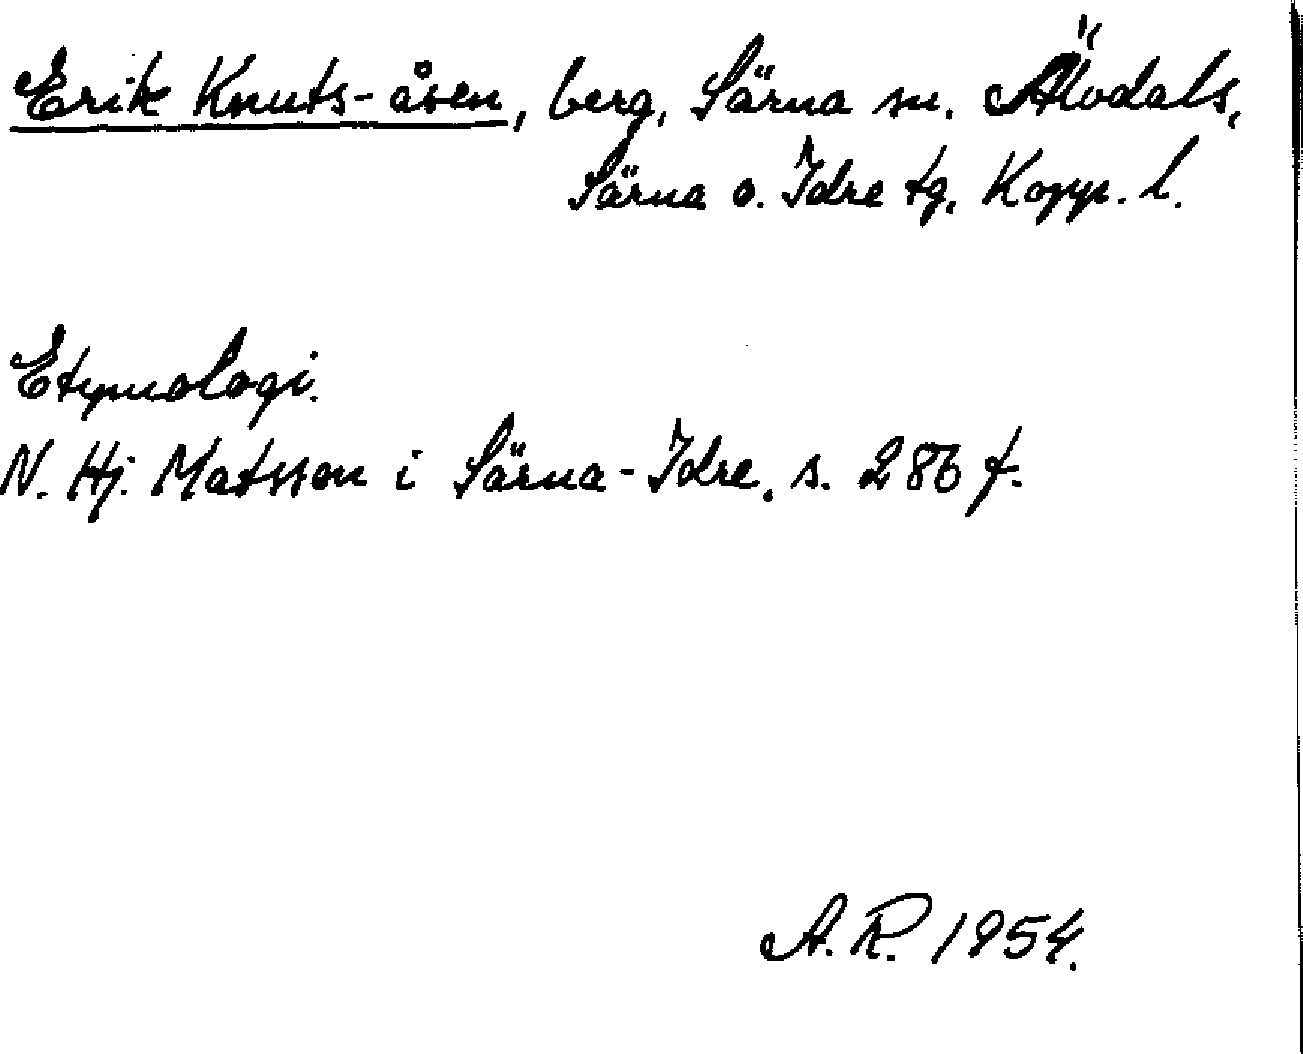 Erik Knuts-åsen, berg, Särna sn. Älvdals,
Särna o. Idre tg, Kopp. l.
Etymologi.
N. Hj. Matsson i Särna-Idre, s. 286 f.
A. R. 1954.